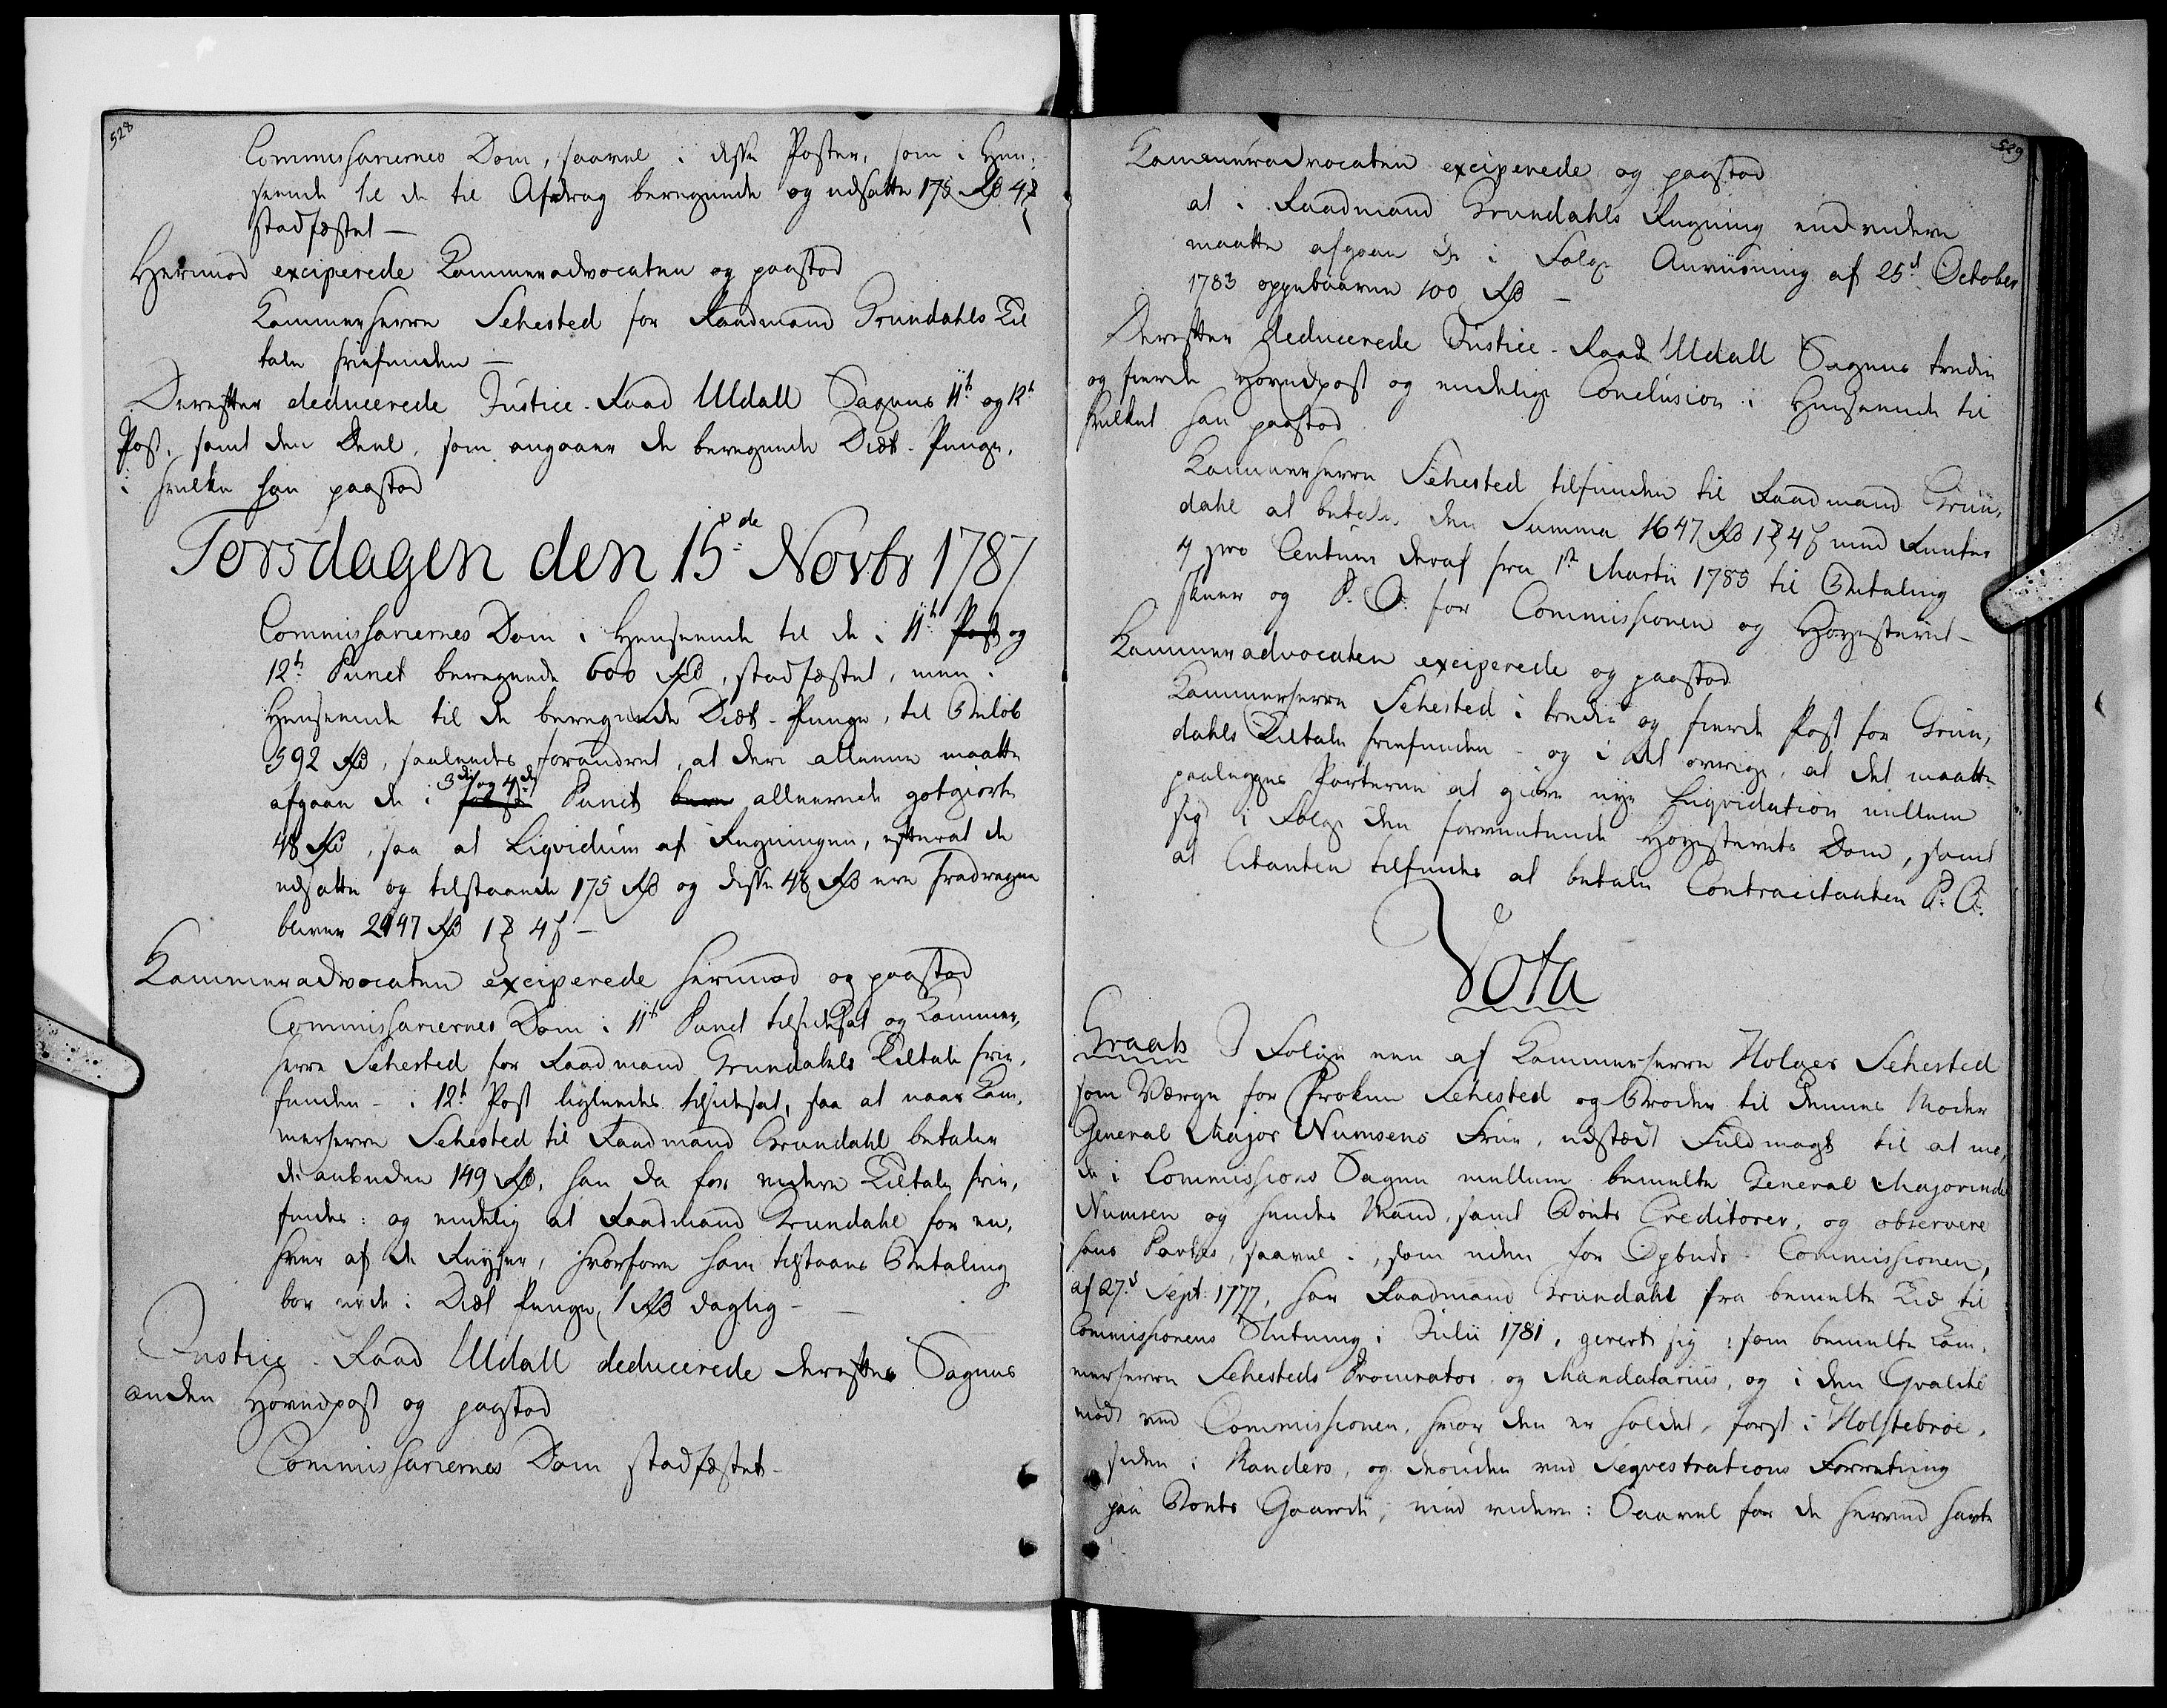 528
Commissariernes Dom, saavel i disse Poster, som i Hen-
seende til de til Afdrag beregnede og udsatte 175 Rd 4 ß
stadfæstet —
Hermod exciperede Kammeradvocaten og paastod
Kammerherre Sehested for Raadmand Grundahls Til
tale friefunden —
Derefter deducerede Justice-Raad Uldall Sagens 11te og 12te
Post, samt den Deel, som angaaer de beregnede Diæt-Penge,
i hvilke han paastod
Torsdagen den 15de Novbr 1787
Commissariernes Dom i Henseende til de i 11te Post og
12te Punct beregnede 600 Rd, stadfæstet, men i
Henseende til de beregnede Diæt-Penge, til Beløb
592 Rd, saaledes forandret, at deri alleene maatte
3die og 4de
afgaae de i Punct allereede gotgiorte
48 Rd, saa at Liqvidum af Regningen, efterat de
udsatte og tilstaaende 175 Rd og disse 48 Rd ere fradragne
bliver 2147 Rd 1 ꝳ 4 ß —
Kammeradvocaten exciperede herimod og paastod
Commissariernes Dom i 11te Punct tilsidesat og Kammer-
herre Sehested for Raadmand Grundahls Tiltale frie-
funden — i 12te Post ligeledes tilsidesat, saa at naar Kam-
merherre Sehested til Raadmand Grundahl betaler
de anbudne 149 Rd, han da for videre Tiltale frie-
findes: og endelig at Raadmand Grundahl for en-
hver af de Reyser, hvorfore ham tilstaaes Betaling
bør nyde i Diæt Penge, 1 Rd daglig —
Justice-Raad Uldall deducerede derefter Sagens
anden Hovedpost og paastod
Commissariernes Dom stadfæstet —
529
Kammeradvocaten exciperede og paastod
at i Raadmand Grundahls Regning endvidere
maatte afgaae de i Følge Anviisning af 25d October
1783 oppebaarne 100 Rd —
Derefter deducerede Justice-Raad Uldall Sagens tredie
og fierde Hovedpost og endelige Conclusion i Henseende til
hvilket han paastod
Kammerherre Sehested tilfunden til Raadmand Grun-
dahl at betale den Summa 1647 Rd 1 ꝳ 4 ß med Renter
4 pro Centum deraf fra 1te Martii 1785 til Betaling
skeer og P. O. for Commissionen og Høyesteret —
Kammeradvocaten exciperede og paastod
Kammerherre Sehested i tredie og fierde Post for Grun-
dahls Tiltale friefunden — og i det øvrige, at det maatte
paalegges Parterne at giøre nye Liqvidation imellem
sig i Følge den forventende Høyesterets Dom, samt
at Citanten tilfindes at betale Contracitanten P. O.
Vota
Graah I Følge een af Kammerherre Holger Sehested
som Værge for Frøken Sehested og Broder til dennes Moder
General Major Numsens Frue, udstædt Fuldmagt til at mø-
de i Commissions Sagen mellem bemelte General Majorinde
Numsen og hendes Mand, samt Boets Creditorer, og observere
hans Partes, saavel i, som uden for Opbuds-Commissionen,
af 27d Sept: 1777, har Raadmand Grundahl fra bemelte Tid til
Commissionens Slutning i Julii 1781, gereret sig som bemelte Kam-
merherre Sehesteds Procurator og Mandatarius, og i den Qvalité
mødt ved Commissionen, hvor den er holdet, først i Holstebroe,
siden i Randers, og desuden ved Seqvestrations Forretning
paa Boets Gaarde, med videre: Saavel for de herved havte